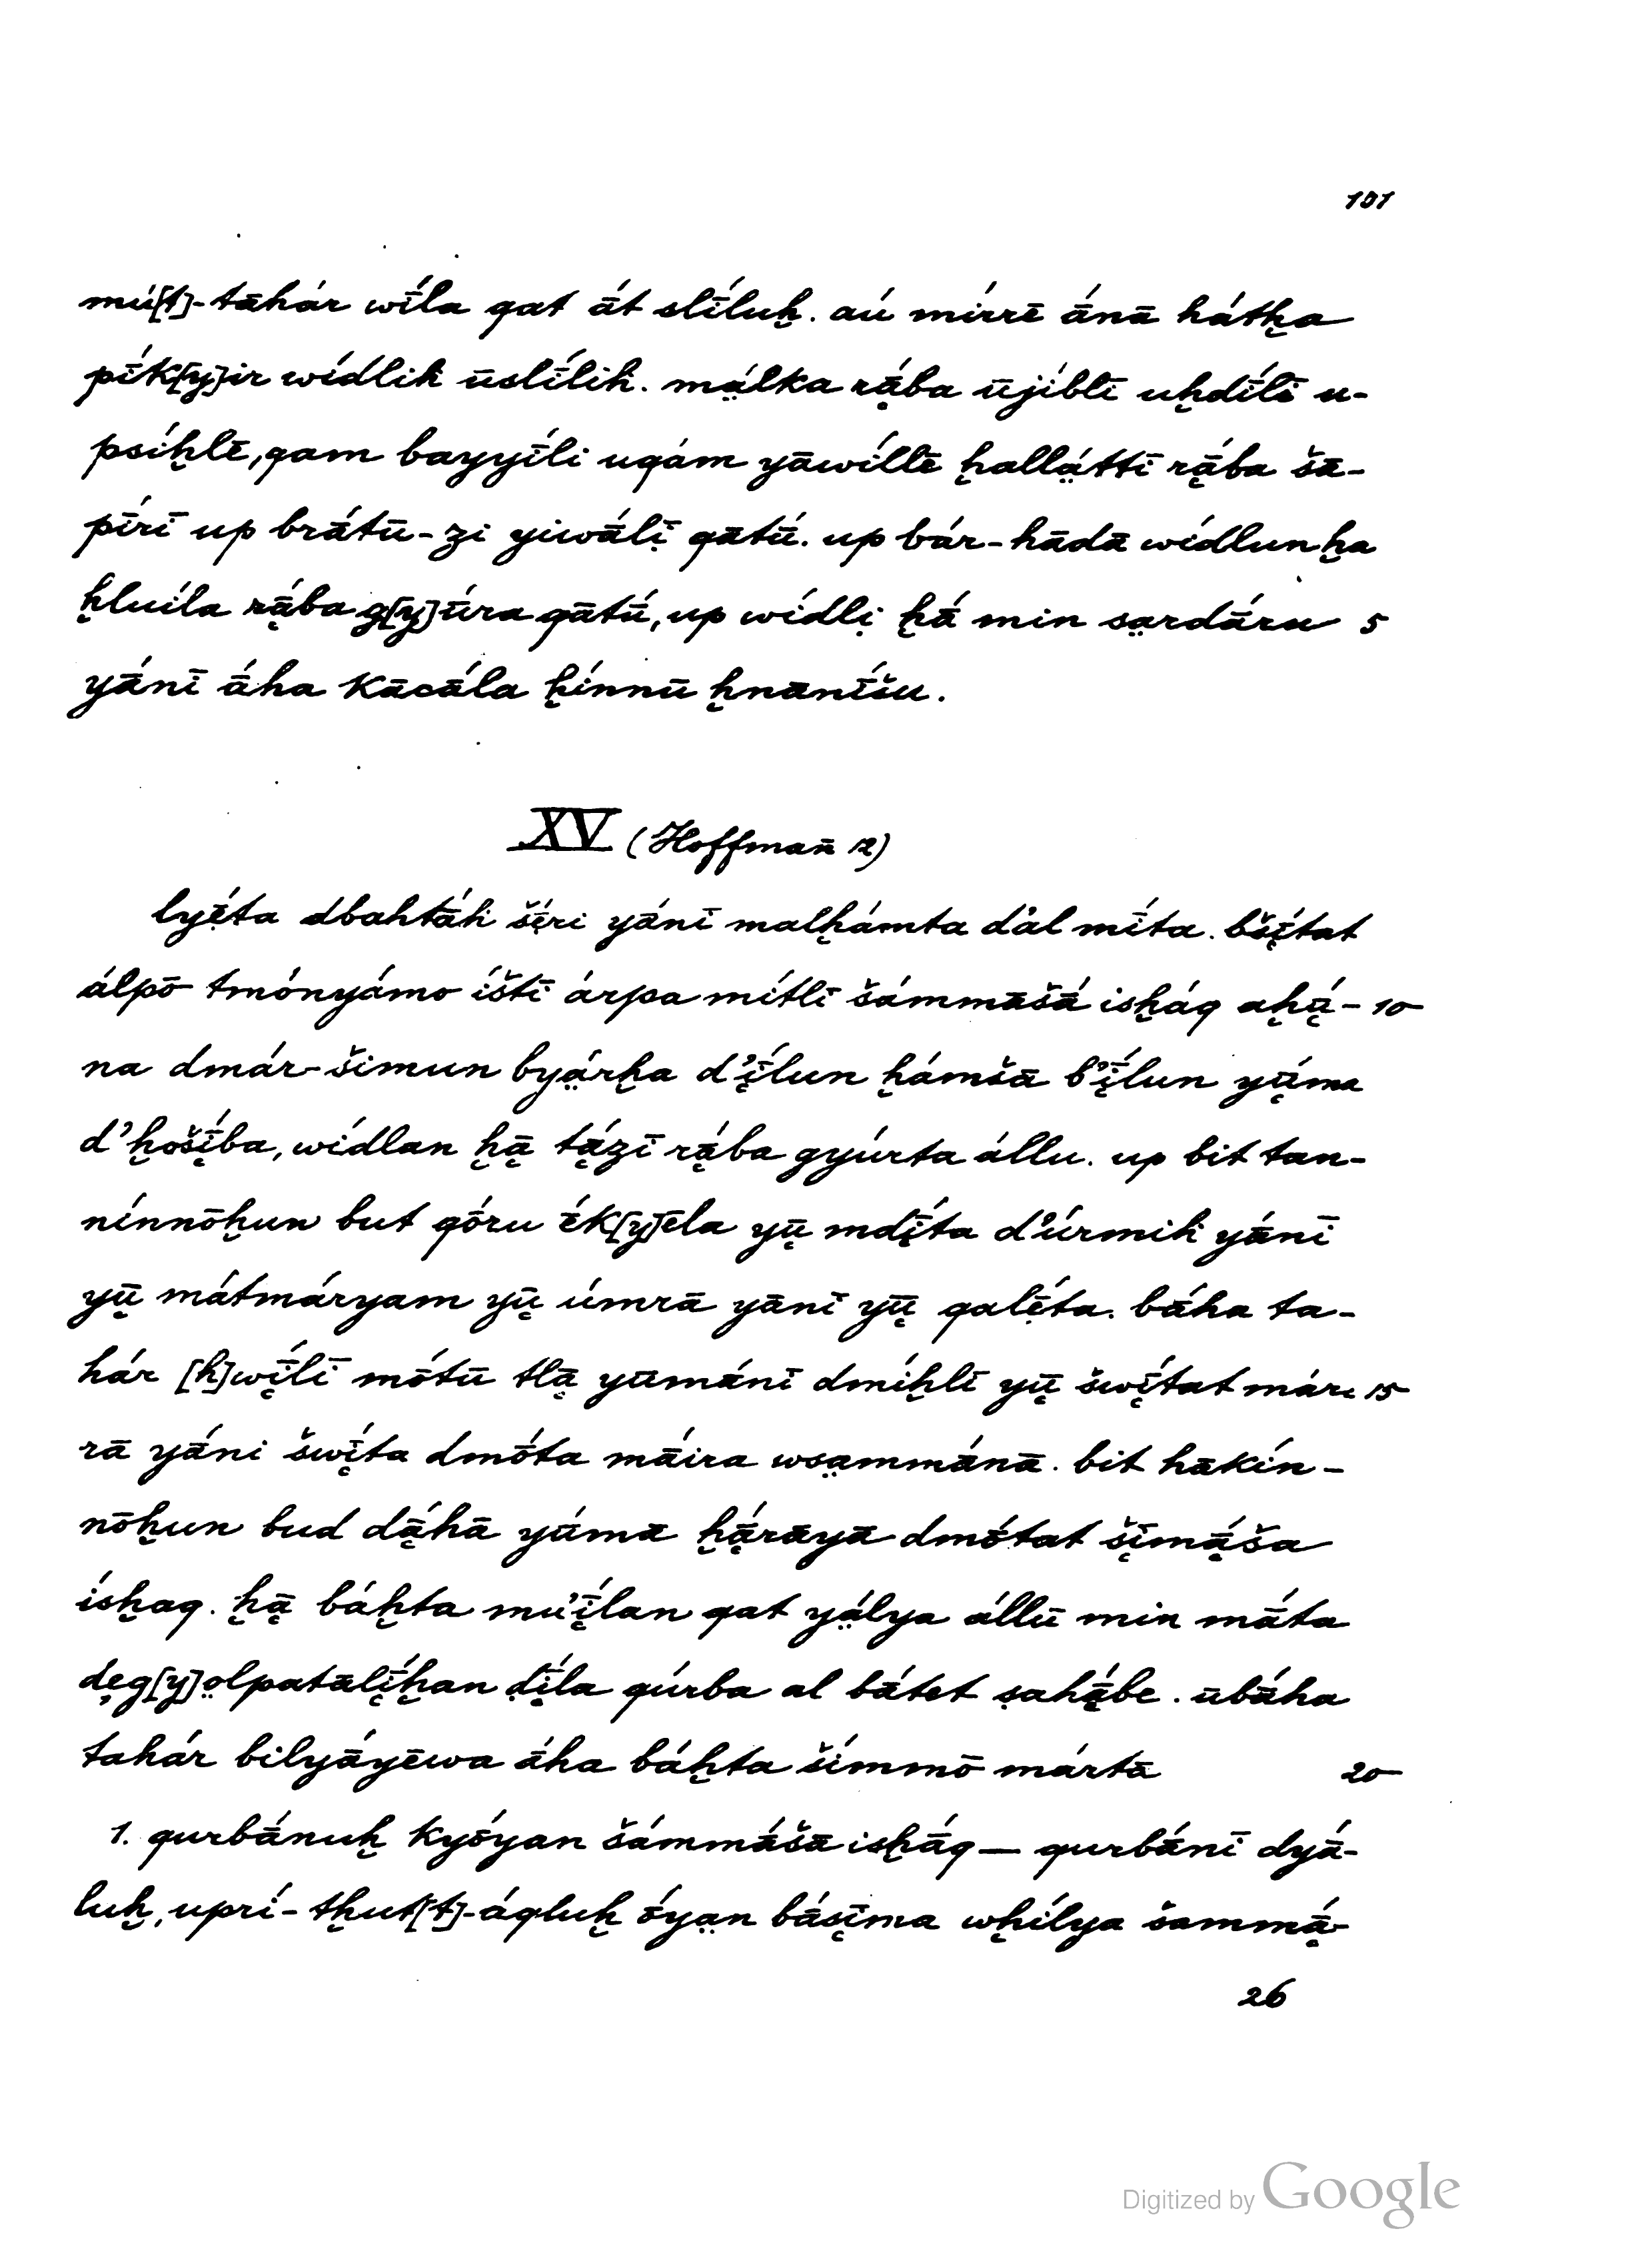 101
mú[t]-tāhár wī́la qat ā́t slī́luḫ. aú mírrē ā́nā hátḫa
pī́k[y]ir wídliḣ ūslī́liḣ. mạ̈́lka rą̄́ba ūjíblī uḫdī́lī u-
psíḫlē, qam bayyī́li uqám yāwíllē ḫallạ̈́ttī rą̄́ba šā-
pīrī up brā́tū-zi yiwā́lị̄ qātū́. up bár-hādā wídlunḫa
ḫluíla rą̄́ba g[y]ū́ra qātū́, up wídlị ḫā́ min sạ̈rdā́ru 5
yā́nī ā́ha kācā́la ḫínnū ḫnānī́šu.
XV (Hoffmañ 12)
lyẹ́̄ta dbahtā́ḣ šẹ́̄ri yā́nī malḫámta d'al mī́ta. bšį̄́tat
álpō tmónyámo íštī árpa mítlī šámmāšā́ isḫáq aḫų̄́- 10
na dmár-šimun byạ̈́rḫa d'į̄́lun ḫámšā b'į̄́lun yų̄́ma
d'ḫošį̄́ba, wídlan ḫą̄ tą́zī rą̄́ba gyúrta állu. up bit tan-
nínnōḫun but qóru ḗk[y]ēla yų̄ mdį̄́ta d'úrmiḣ yā́nī
yų̄ mátmáryam yų̄ úmrā yānī yų̄ qalẹ́̄ta. bā́ha ta-
hár [h]wį̄́lī mṓtū tlą̄ yūmā́nī dmíḫlī yų̄ šwį̄́tat már- 15
rā yā́ni šwį̄́ta dmṓta mā́ira wsạ̈mmā́nā. bit hākín-
nōḫun bud dą̄́hā yū́mā ḫą̄́rāyā dmṓtat šį̄mą̄́ša
ísḫaq. ḫą̄ báḫta mu'į̄́lan qat yạ̈́lya állū min mā́ta
dẹg[y]ọ̈lpatālį̄́ḫan dį̄́la qúrba al bā́tet sạhą̄́be. ūbā́ha
tahár bilyā́yēwa ā́ha báḫta šímmō mártā 20
1. qurbā́nuḫ kyṓyan šámmā́šā isḫā́q — qurbā́nī dyā́-
luḫ, uprí-tḫut[t]-áqluḫ ṓyạ̈n bā́sį̄ma wḫílya šammą̄́-
26
Digitized by Google